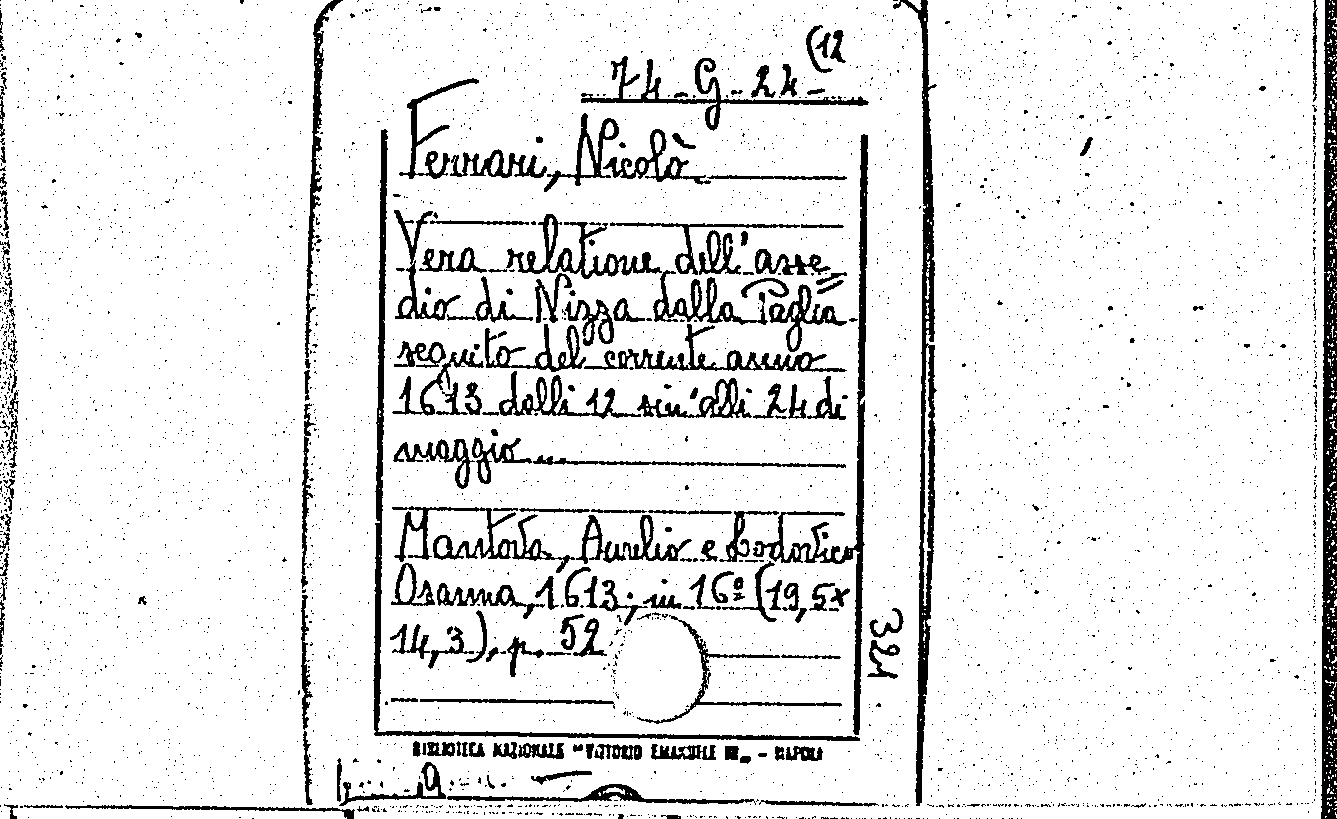 74-G-24-(12
Ferrari, Nicolò-
Vera relatione dell'asse=
dio di Nizza dalla Paglia
seguito del corrente anno
1613 dalli 12 sin'alli 24 di
maggio...
Mantova, Aurelio e Lodovico
Osanna, 1613; in 16º (19,5×
14,3), p. 52
321
BIBLIOTECA NAZIONALE "VITTORIO EMANUELE III„ - NAPOLI